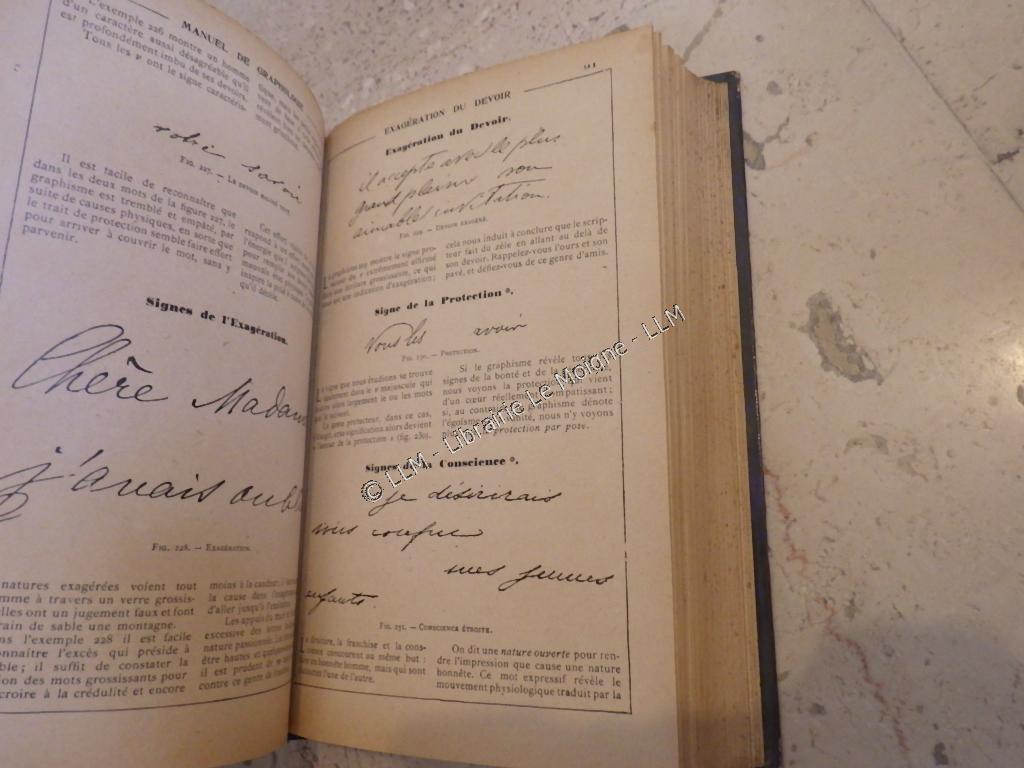 MANUEL DE GRAPHOLOGIE
L'exemple 226 montre un homme
d'un caractère aussi désagréable qu'il
est profondément imbu de ses devoirs.
Tous les v ont le signe caractéris-
FIG. 227. — LE DEVOIR
Il est facile de reconnaître que
dans les deux mots de la figure 227, le
graphisme est tremblé et empâté, par
suite de causes physiques, en sorte que
le trait de protection semble faire effort
pour arriver à couvrir le mot, sans y
parvenir.
Signes de l'Exagération.
Chère Madame
j'avais oubl
FIG. 228. — EXAGÉRATION.
natures exagérées voient tout
mme à travers un verre grossis-
elles ont un jugement faux et font
rain de sable une montagne.
ns l'exemple 228 il est facile
onnaître l'excès qui préside à
ble; il suffit de constater la
ion des mots grossissants pour
croire à la crédulité et encore
moins à la candeur
la cause dans l'exagération
d'aller jusqu'à
excessive des
nature passionnée.
être hautes et
il est prudent de
contre ce genre de
EXAGÉRATION DU DEVOIR
91
Exagération du Devoir.
il accepte avec le plus
grand plaisir son
aimable invitation.
FIG. 229. — DEVOIR EXAGÉRÉ.
graphisme 229 montre le signe pro-
tecteur du v extrêmement affirmé
dans une écriture grossissante, ce qui
est une indication d'exagération;
cela nous induit à conclure que le scrip-
teur fait du zèle en allant au delà de
son devoir. Rappelez-vous l'ours et son
pavé, et défiez-vous de ce genre d'amis.
Signe de la Protection*.
Vous les avoir
FIG. 230. — PROTECTION.
signe que nous étudions se trouve
également dans le v majuscule qui
alors largement le ou les mots
qui le suivent.
Le geste protecteur, dans ce cas,
s'élargit, et sa signification alors devient
« l'amour de la protection » (fig. 230).
Si le graphisme révèle tous les
signes de la bonté et de la
nous voyons la protection qui vient
d'un cœur réellement compatissant;
si, au contraire, le graphisme dénote
l'égoïsme, la vanité, nous n'y voyons
plus que la protection par pose.
Signes de la Conscience*.
je désirerais
vous confier
mes jeunes
enfants.
FIG. 231. — CONSCIENCE ÉTROITE.
La droiture, la franchise et la cons-
cience concourent au même but :
faire un honnête homme, mais qui sont
distinctes l'une de l'autre.
On dit une nature ouverte pour ren-
dre l'impression que cause une nature
honnête. Ce mot expressif révèle le
mouvement physiologique traduit par la
© LLM - Librairie Le Moigne - LLM